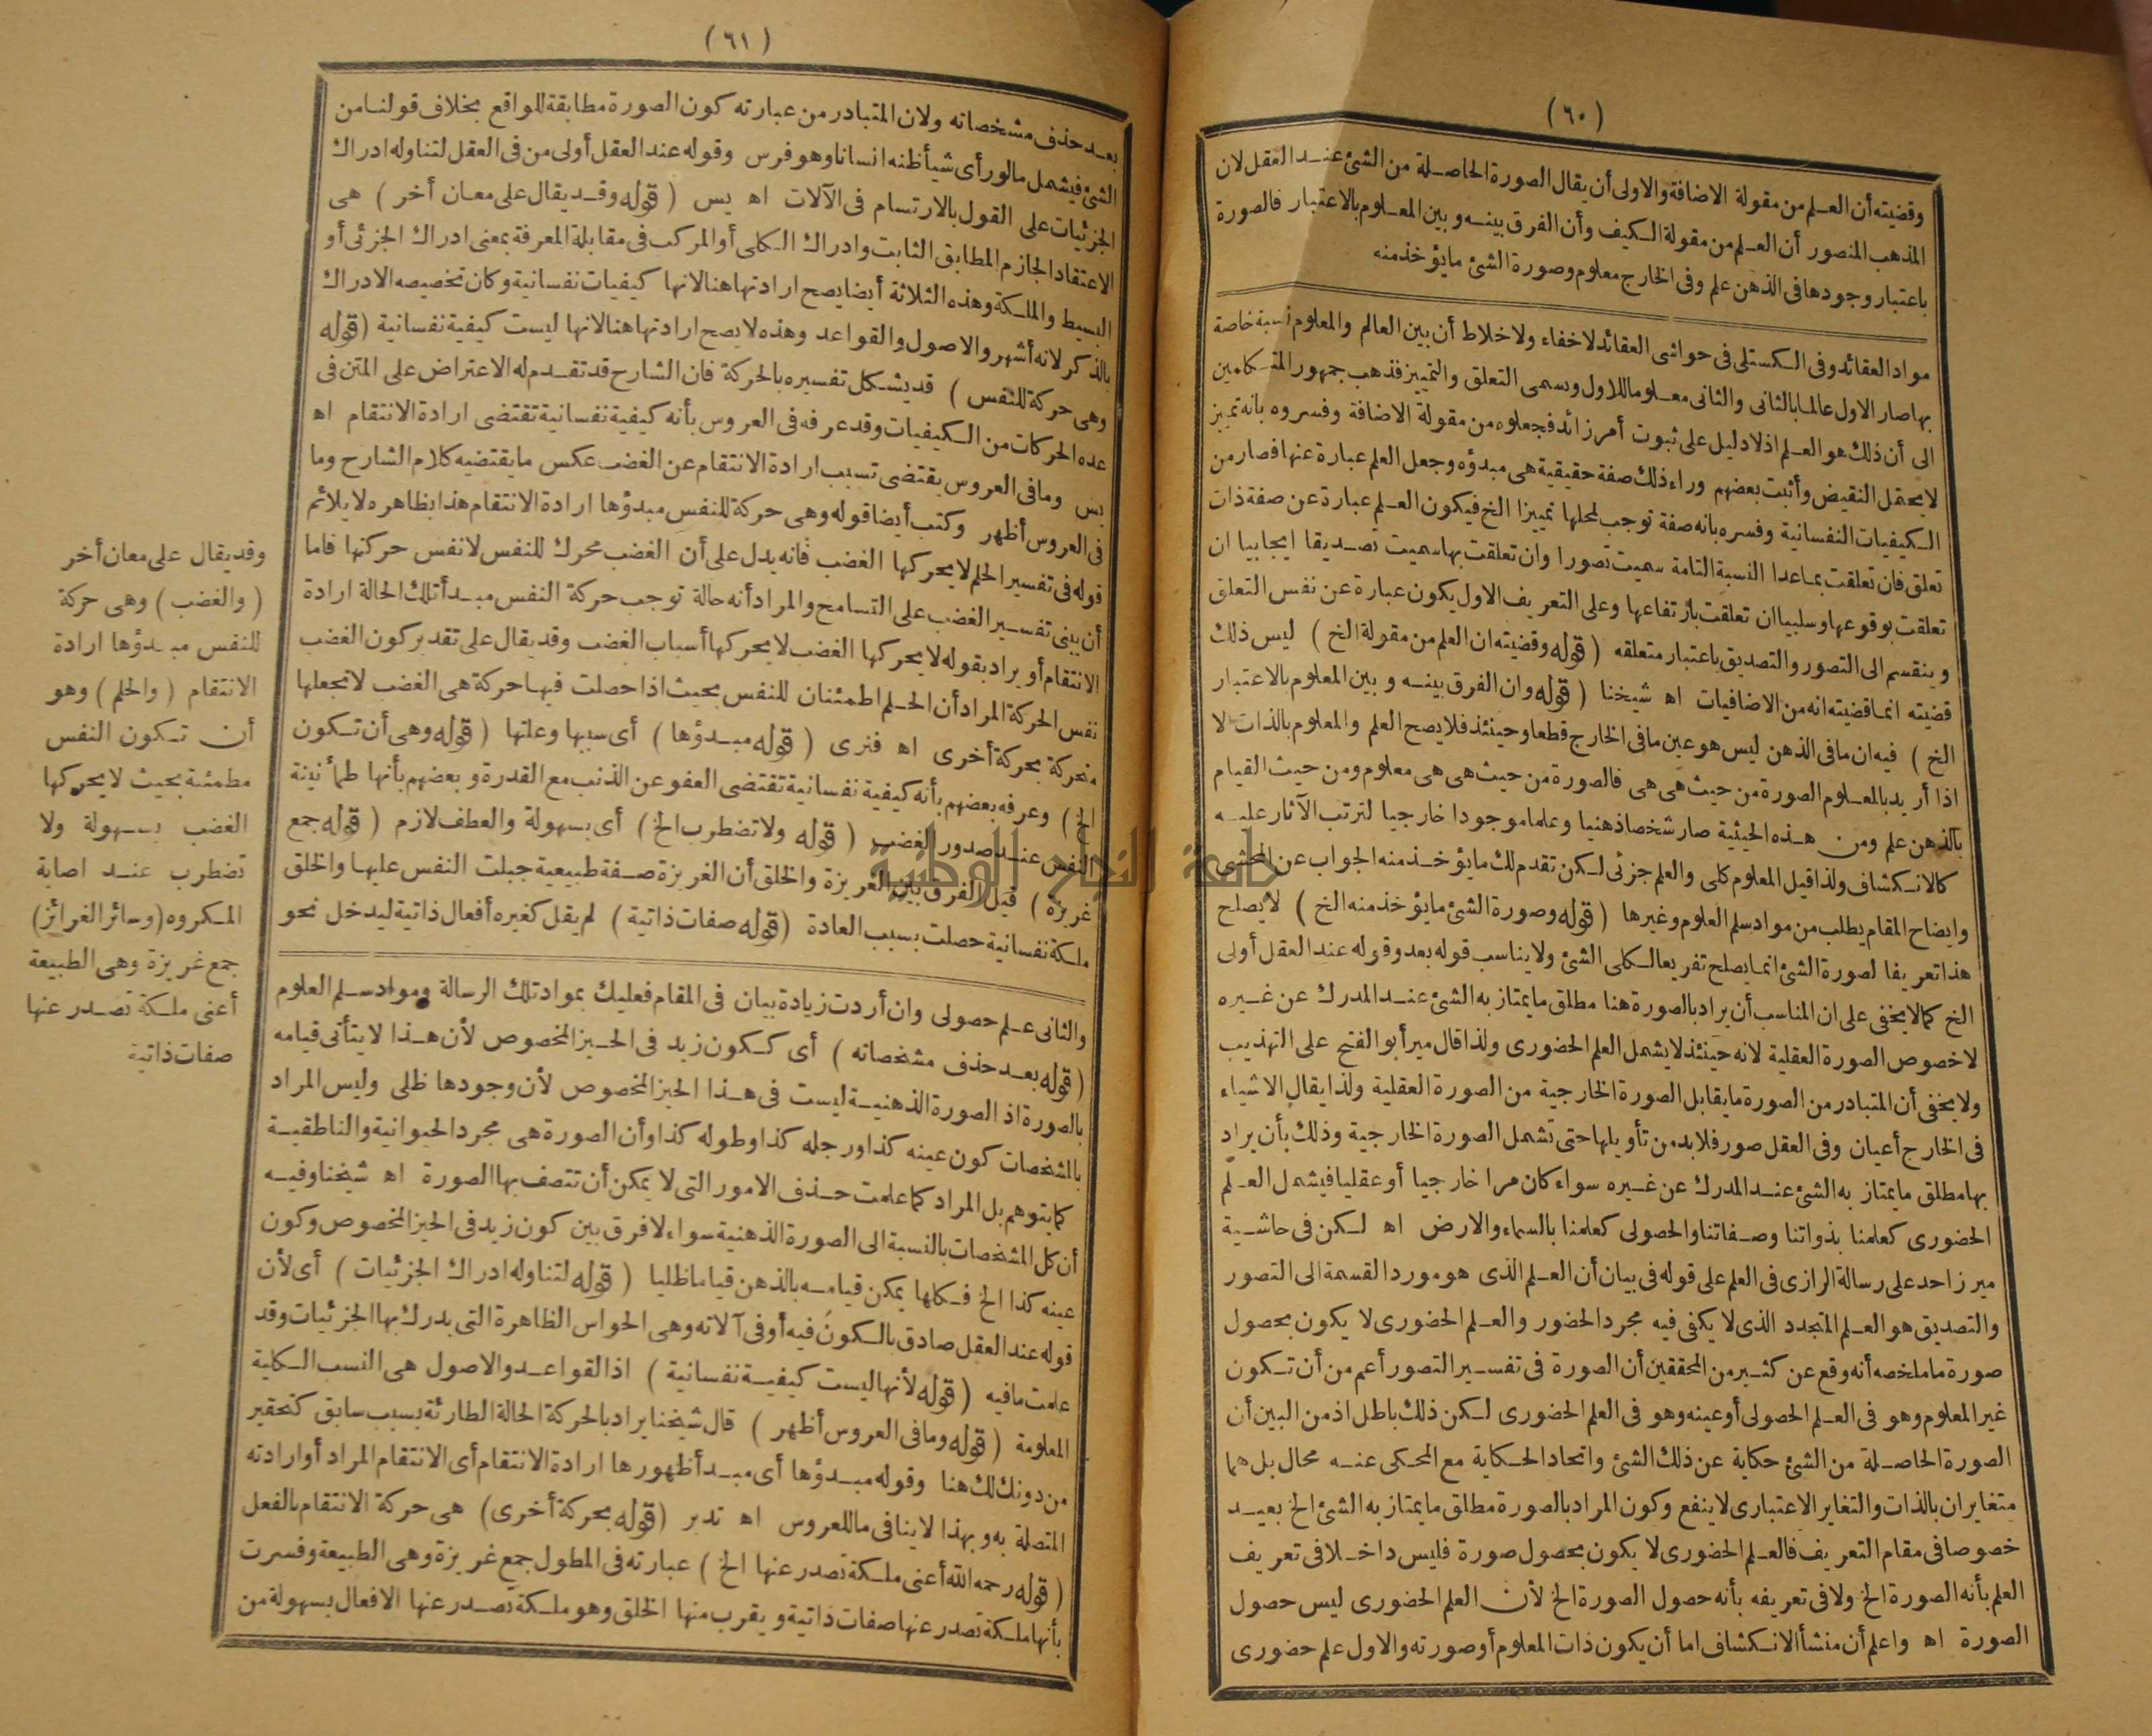 (٦٠)
وقضيته أن العلم من مقولة الاضافة والاولى أن يقال الصورة الحاصلة من الشئ عند العقل لان
المذهب المنصور أن العلم من مقولة الكيف وأن الفرق بينه وبين المعلوم بالاعتبار فالصورة
باعتبار وجودها فى الذهن علم وفى الخارج معلوم وصورة الشئ مايؤخذ منه
مواد العقائد وفى الكستلى فى حواشى العقائد لاخفاء ولاخلاط أن بين العالم والمعلوم نسبة خاصة
بها صار الاول عالما بالثانى والثانى معلوما للاول ويسمى التعلق والتمييز فذهب جمهور المتكلمين
الى أن ذلك هو العلم اذ لا دليل على ثبوت أمر زائد فجعلوه من مقولة الاضافة وفسروه بأنه تمييز
لا يحتمل النقيض وأثبت بعضهم وراء ذلك صفة حقيقية هى مبدؤه وجعل العلم عبارة عنها فصار من
الكيفيات النفسانية وفسره بانه صفة توجب لمحلها تمييزا الخ فيكون العلم عبارة عن صفة ذات
تعلق فان تعلقت بماعدا النسبة التامة سميت تصورا وان تعلقت بها سميت تصديقا ايجابيا ان
تعلقت بوقوعها وسلبيا ان تعلقت بارتفاعها وعلى التعريف الاول يكون عبارة عن نفس التعلق
وينقسم الى التصور والتصديق باعتبار متعلقه (قوله وقضيته ان العلم من مقولة الخ) ليس ذلك
قضيته انما قضيته انه من الاضافيات اه شيخنا (قوله وان الفرق بينه وبين المعلوم بالاعتبار
الخ) فيه ان مافى الذهن ليس هو عين مافى الخارج قطعا وحينئذ فلا يصح العلم والمعلوم بالذات الا
اذا أريد بالمعلوم الصورة من حيث هى هى فالصورة من حيث هى هى معلوم ومن حيث القيام
بالذهن علم ومن هذه الحيثية صار شخصا ذهنيا وعلما موجودا خارجيا لترتب الآثار عليه
كالانكشاف ولذا قيل المعلوم كلى والعلم جزئى لكن تقدم لك مايؤخذ منه الجواب عن المحشى
وايضاح المقام يطلب من مواد سلم العلوم وغيرها (قوله وصورة الشئ مايؤخذ منه الخ) لا يصلح
هذا تعريفا لصورة الشئ انما يصلح تفريعا لكلى الشئ ولا يناسب قوله بعد وقوله عند العقل أولى
الخ كما لايخفى على ان المناسب أن يراد بالصورة هنا مطلق مايمتاز به الشئ عند المدرك عن غيره
لاخصوص الصورة العقلية لانه حينئذ لا يشمل العلم الحضورى ولذا قال مير أبو الفتح على التهذيب
ولا يخفى أن المتبادر من الصورة ما يقابل الصورة الخارجية من الصورة العقلية ولذا يقال الاشياء
فى الخارج أعيان وفى العقل صور فلابد من تأويلها حتى تشمل الصورة الخارجية وذلك بأن يراد
بها مطلق مايمتاز به الشئ عند المدرك عن غيره سواء كان مرا خارجيا أو عقليا فيشمل العلم
الحضورى كعلمنا بذواتنا وصفاتنا والحصولى كعلمنا بالسماء والارض اه لكن فى حاشية
مير زاحد على رسالة الرازى فى العلم على قوله فى بيان أن العلم الذى هو مورد القسمة الى التصور
والتصديق هو العلم المتجدد الذى لا يكفى فيه مجرد الحضور والعلم الحضورى لا يكون بحصول
صورة ما ملخصه أنه وقع عن كثير من المحققين أن الصورة فى تفسير التصور أعم من أن تكون
غير المعلوم وهو فى العلم الحصولى أو عينه وهو فى العلم الحضورى لكن ذلك باطل اذ من البين أن
الصورة الحاصلة من الشئ حكاية عن ذلك الشئ واتحاد الحكاية مع المحكى عنه محال بل هما
متغايران بالذات والتغاير الاعتبارى لا ينفع وكون المراد بالصورة مطلق مايمتاز به الشئ الخ بعيد
خصوصا فى مقام التعريف فالعلم الحضورى لا يكون بحصول صورة فليس داخلا فى تعريف
العلم بأنه الصورة الخ ولا فى تعريفه بأنه حصول الصورة الخ لأن العلم الحضورى ليس حصول
الصورة اه واعلم أن منشأ الانكشاف اما أن يكون ذات المعلوم أو صورته والاول علم حضورى
(٦١)
بعد حذف مشخصاته ولان المتبادر من عبارته كون الصورة مطابقة للواقع بخلاف قولنا من
الشئ فيشمل مالو رأى شيأ ظنه انسانا وهو فرس وقوله عند العقل أولى من فى العقل لتناوله ادراك
الجزئيات على القول بالارتسام فى الآلات اه يس (قوله وقد يقال على معان أخر) هى
الاعتقاد الجازم المطابق الثابت وادراك الكلى أو المركب فى مقابلة المعرفة بمعنى ادراك الجزئى أو
البسيط والملكة وهذه الثلاثة أيضا يصح ارادتها هنا لانها كيفيات نفسانية وكان تخصيصه الادراك
بالذكر لانه أشهر والاصول والقواعد وهذه لا يصح ارادتها هنا لانها ليست كيفية نفسانية (قوله
وهى حركة للنفس) قد يشكل تفسيره بالحركة فان الشارح قد تقدم له الاعتراض على المتن فى
عده الحركات من الكيفيات وقد عرفه فى العروس بأنه كيفية نفسانية تقتضى ارادة الانتقام اه
يس ومافى العروس يقتضى تسبب ارادة الانتقام عن الغضب عكس مايقتضيه كلام الشارح وما
فى العروس أظهر وكتب أيضا قوله وهى حركة للنفس مبدؤها ارادة الانتقام هذا بظاهره لا يلائم
قوله فى تفسير الحلم لا يحركها الغضب فانه يدل على أن الغضب محرك للنفس لا نفس حركتها فاما
أن يبنى تفسير الغضب على التسامح والمراد أنه حالة توجب حركة النفس مبدأ تلك الحالة ارادة
الانتقام أو يراد بقوله لا يحركها الغضب لا يحركها أسباب الغضب وقد يقال على تقدير كون الغضب
نفس الحركة المراد أن الحلم اطمئنان للنفس بحيث اذا حصلت فيها حركة هى الغضب لا تجعلها
متحركة بحركة أخرى اه فنرى (قوله مبدؤها) أى سببها وعلتها (قوله وهى أن تكون
الخ) وعرفه بعضهم بأنه كيفية نفسانية تقتضى العفو عن الذنب مع القدرة وبعضهم بأنها طمأنينة
النفس عند صدور الغضب (قوله ولا تضطرب الخ) أى بسهولة والعطف لازم (قوله جمع
غريزة) قيل الفرق بين الغريزة والخلق أن الغريزة صفة طبيعية جبلت النفس عليها والخلق
ملكة نفسانية حصلت بسبب العادة (قوله صفات ذاتية) لم يقل كغيره أفعال ذاتية ليدخل نحو
والثانى علم حصولى وان أردت زيادة بيان فى المقام فعليك بمواد تلك الرسالة ومواد سلم العلوم
(قوله بعد حذف مشخصاته) أى ككون زيد فى الحيز المخصوص لأن هذا لا يتأتى قيامه
بالصورة اذ الصورة الذهنية ليست فى هذا الحيز المخصوص لأن وجودها ظلى وليس المراد
بالمشخصات كون عينه كذا ورجله كذا وطوله كذا وأن الصورة هى مجرد الحيوانية والناطقية
كما يتوهم بل المراد كما علمت حذف الامور التى لا يمكن أن تتصف بها الصورة اه شيخنا وفيه
أن كل المشخصات بالنسبة الى الصورة الذهنية سواء لا فرق بين كون زيد فى الحيز المخصوص وكون
عينه كذا الخ فكلها يمكن قيامه بالذهن قياما ظليا (قوله لتناوله ادراك الجزئيات) أى لأن
قوله عند العقل صادق بالكون فيه أو فى آلاته وهى الحواس الظاهرة التى يدرك بها الجزئيات وقد
علمت مافيه (قوله لأنها ليست كيفية نفسانية) اذ القواعد والاصول هى النسب الكلية
المعلومة (قوله ومافى العروس أظهر) قال شيخنا يراد بالحركة الحالة الطارئة بسبب سابق كتحقير
من دونك لك هنا وقوله مبدؤها أى مبدأ ظهورها ارادة الانتقام أى الانتقام المراد أو ارادته
المتصلة به وبهذا لا ينافى ما للعروس اه تدبر (قوله بحركة أخرى) هى حركة الانتقام بالفعل
(قوله رحمه الله أعنى ملكة تصدر عنها الخ) عبارته فى المطول جمع غريزة وهى الطبيعة وفسرت
بأنها ملكة تصدر عنها صفات ذاتية ويقرب منها الخلق وهو ملكة تصدر عنها الافعال بسهولة من
وقد يقال على معان أخر
(والغضب) وهى حركة
للنفس مبدؤها ارادة
الانتقام (والحلم) وهو
أن تكون النفس
مطمئنة بحيث لا يحركها
الغضب بسهولة ولا
تضطرب عند اصابة
المكروه (وسائر الغرائز)
جمع غريزة وهى الطبيعة
أعنى ملكة تصدر عنها
صفات ذاتية
جامعة النجاح الوطنية